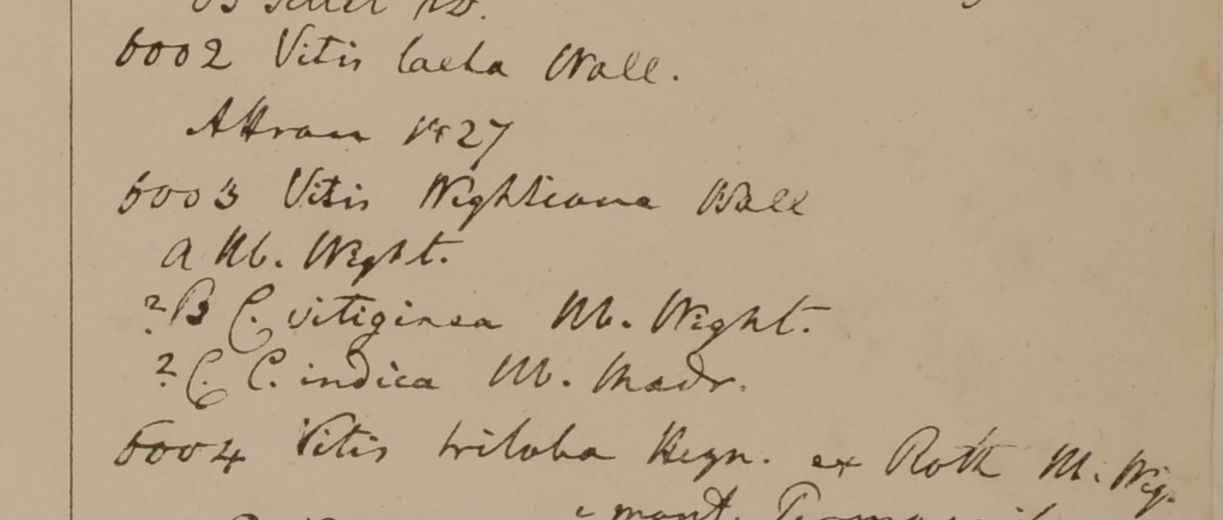 6002 Vitis laeta Wall.
Attran 1827
6003 Vitis Wightiana Wall
a Hb. Wight.
? B C. vitiginea Hb. Wight.
? C. C. indica Hb. Madr.
6004 Vitis triloba Heyn. ex Roth Hb. Wig.
mont.